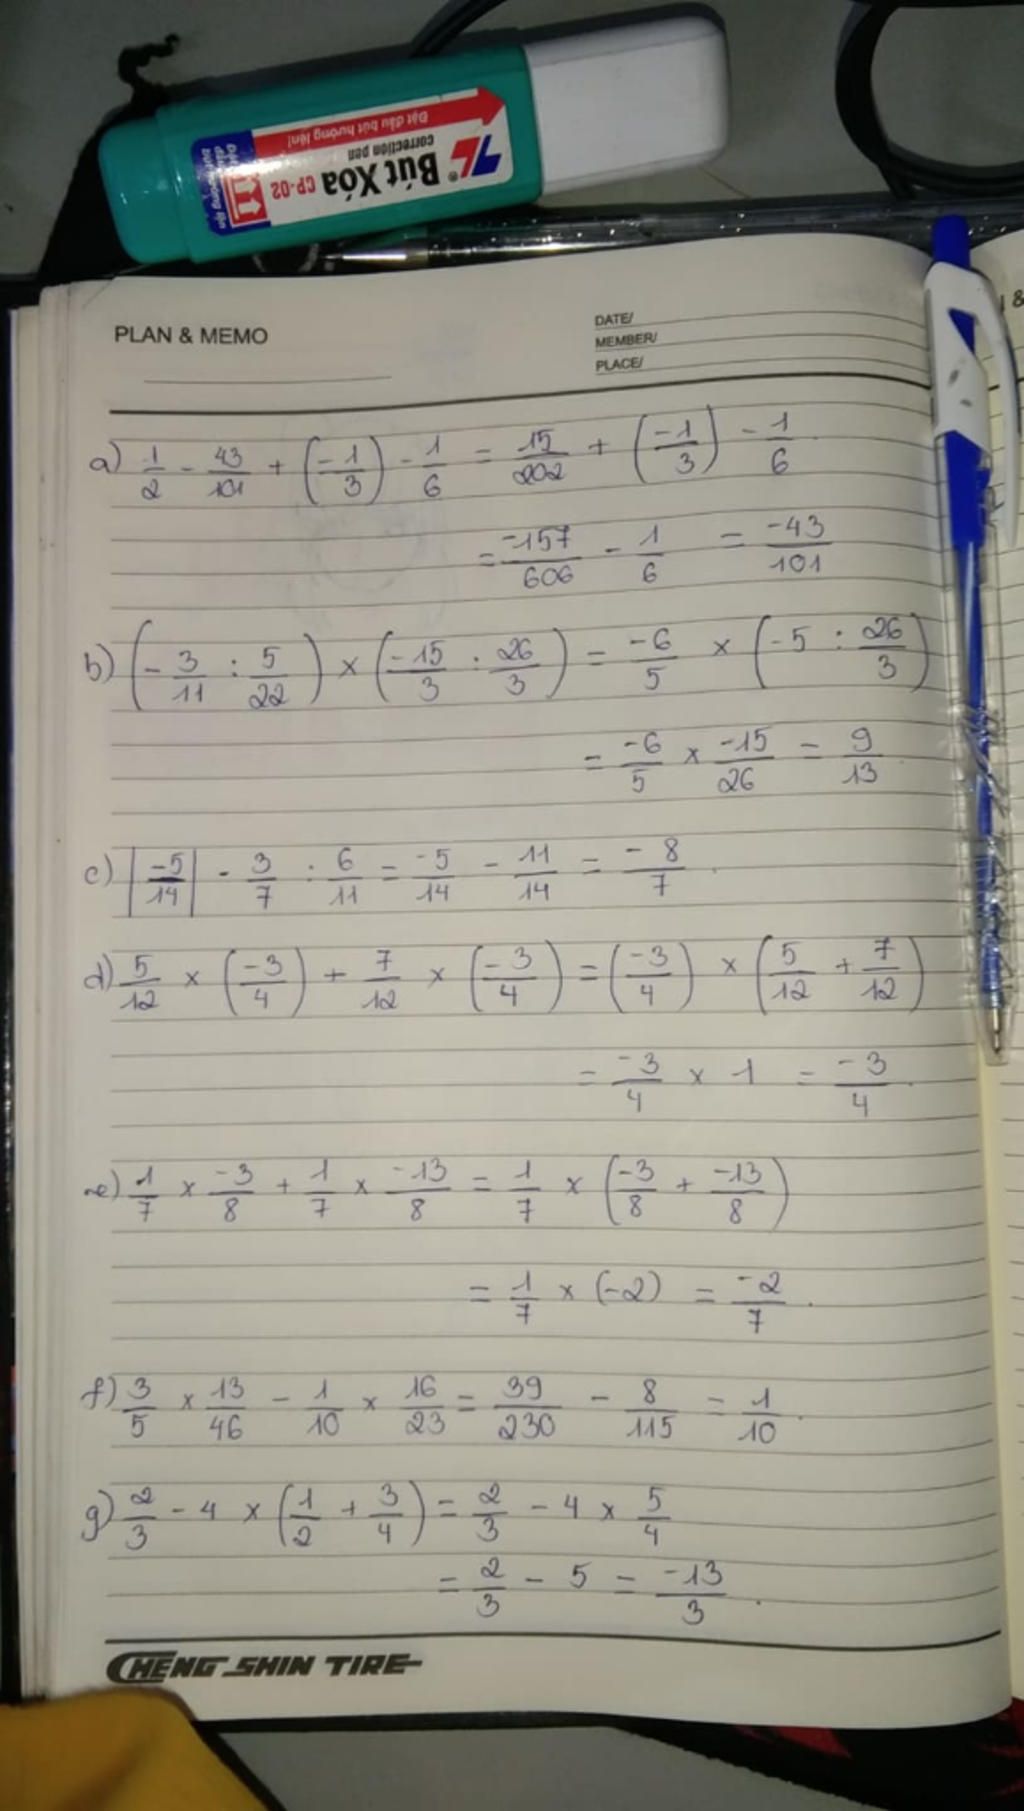 Đặt đầu bút hướng lên!
correction pen
TL® Bút Xóa CP-02
PLAN & MEMO
DATE/
MEMBER/
PLACE/
a) 1/2 - 43/101 + (-1/3) - 1/6 = 15/202 + (-1/3) - 1/6
= -157/606 - 1/6 = -43/101
b) (-3/11 : 5/22) × (-15/3 : 26/3) = -6/5 × (-5 : 26/3)
= -6/5 × -15/26 = 9/13
c) |-5/14| - 3/7 : 6/11 = -5/14 - 11/14 = -8/7.
d) 5/12 × (-3/4) + 7/12 × (-3/4) = (-3/4) × (5/12 + 7/12)
= -3/4 × 1 = -3/4.
e) 1/7 × -3/8 + 1/7 × -13/8 = 1/7 × (-3/8 + -13/8)
= 1/7 × (-2) = -2/7.
f) 3/5 × 13/46 - 1/10 × 16/23 = 39/230 - 8/115 = 1/10.
g) 2/3 - 4 × (1/2 + 3/4) = 2/3 - 4 × 5/4
= 2/3 - 5 = -13/3.
CHENG SHIN TIRE